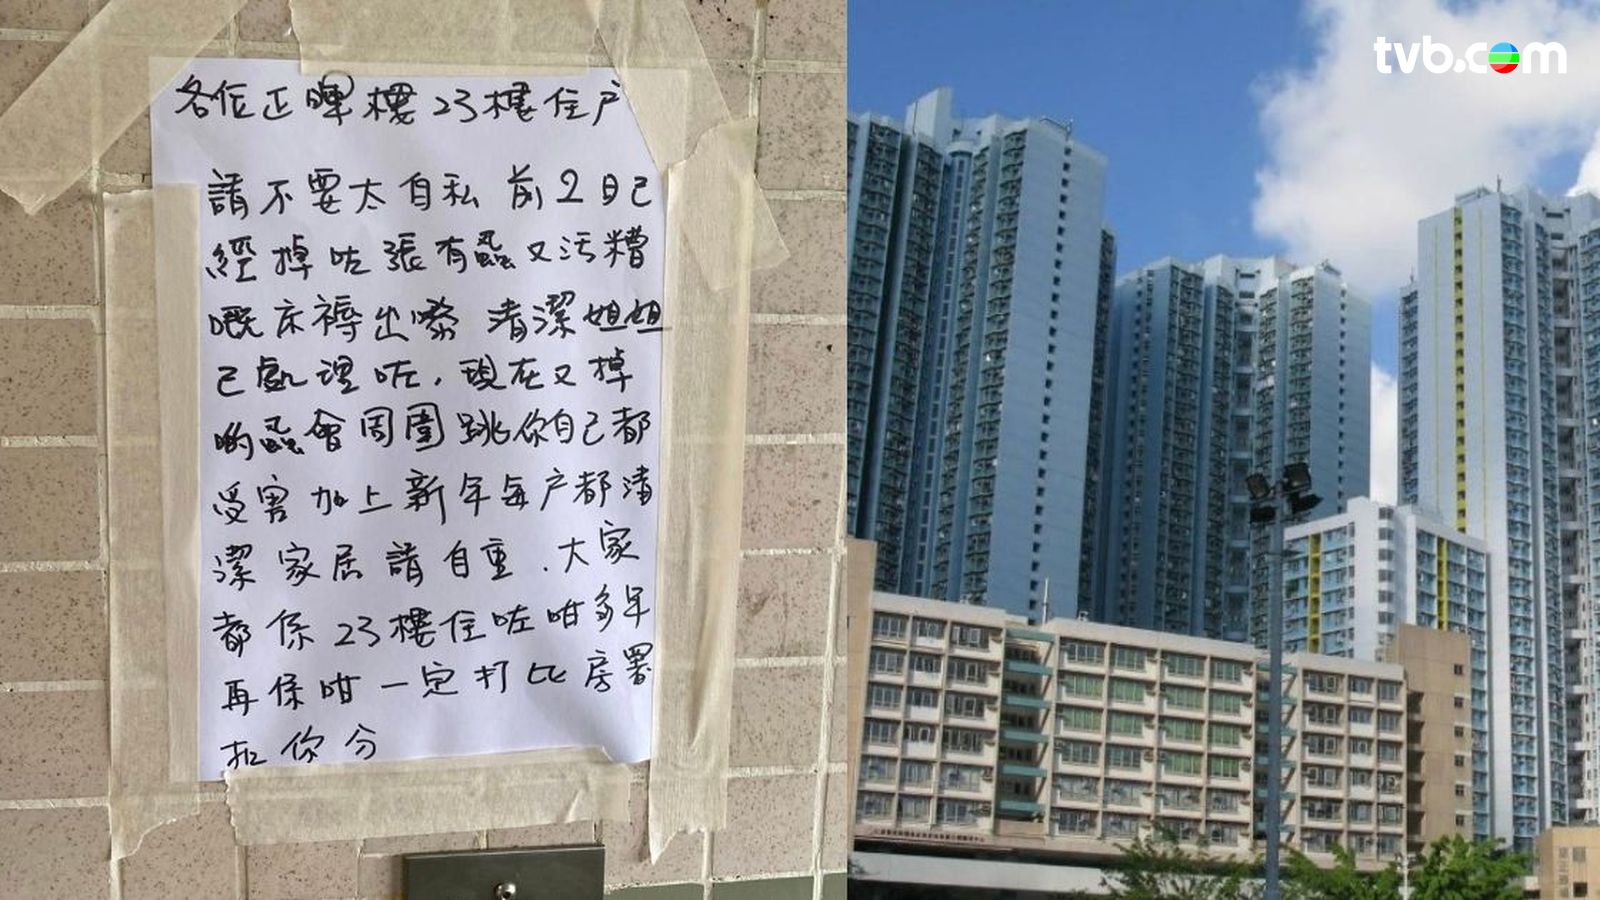 各位正暉樓23樓住户
請不要太自私 前2日已
經掉咗張有蟲又污糟
嘅床褥出嚟 清潔姐姐
已處理咗，現在又掉
啲蟲會周圍跳你自己都
受害加上新年每户都清
潔家居請自重．大家
都係23樓住咗咁多年
再係咁一定打比房署
扣你分
tvb.com